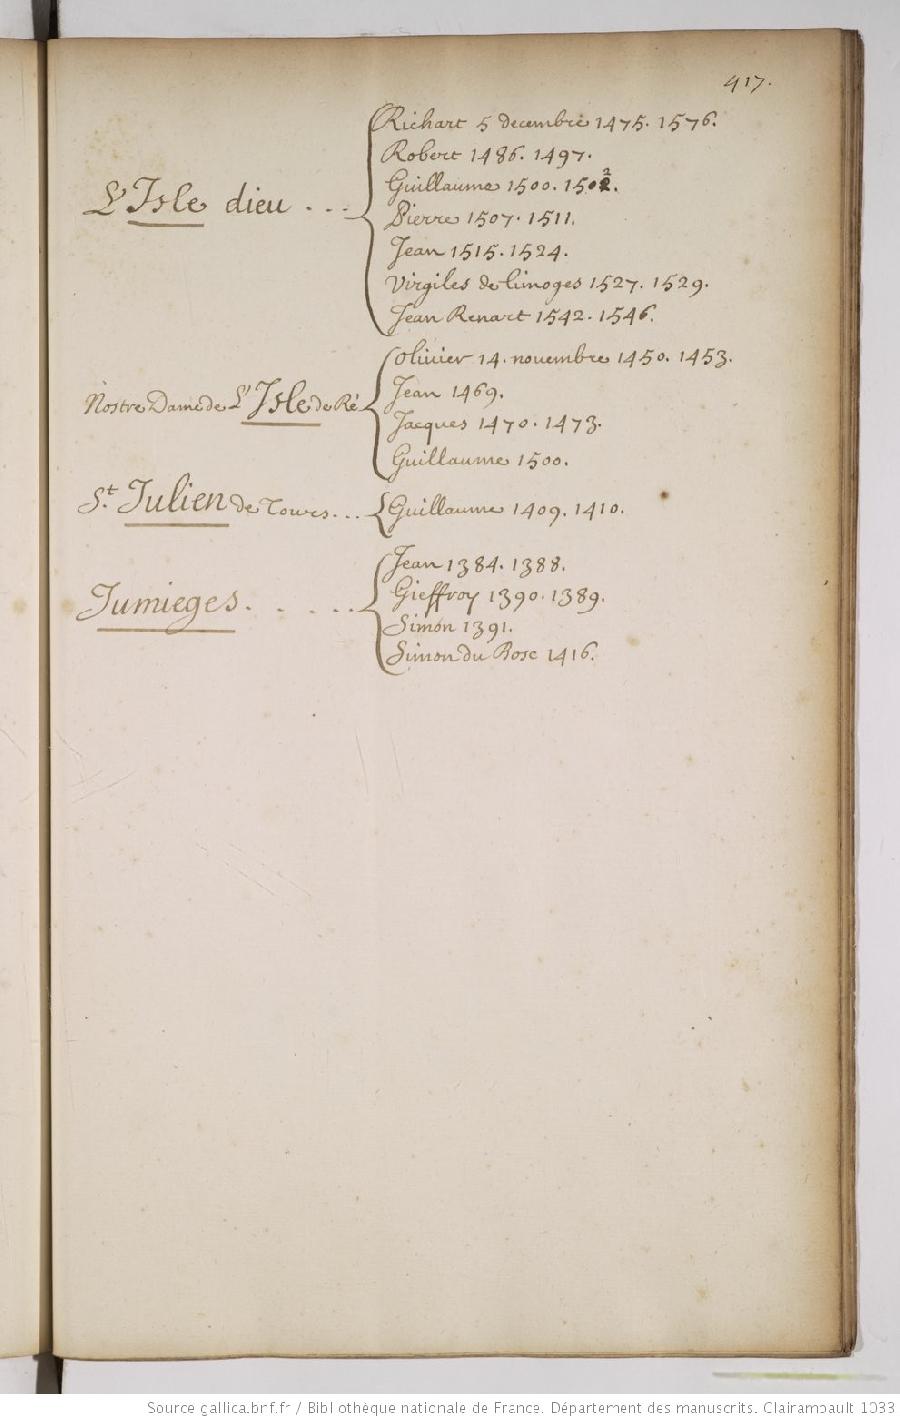 417.
L'Isle dieu . . .
Richart 5 decembre 1475. 1576.
Robert 1486. 1497.
Guillaume 1500. 1502.
Pierre 1507. 1511.
Jean 1515. 1524.
Virgiles de limoges 1527. 1529.
Jean Renart 1542. 1546.
Nostre Dame de L'Isle de Ré
Olivier 14. nouembre 1450. 1453.
Jean 1469.
Jacques 1470. 1473.
Guillaume 1500.
St. Julien de Tours...
Guillaume 1409. 1410.
Jumieges. . . . . .
Jean 1384. 1388.
Gieffroy 1390. 1389.
Simon 1391.
Simon du Bosc 1416.
Source gallica.bnf.fr / Bibliothèque nationale de France. Département des manuscrits. Clairambault 1033